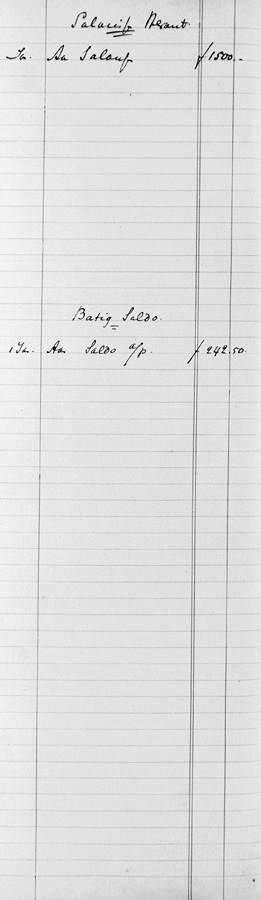 Salaris Beamt
Ja. Aan Salaris f 1500.-
Batig Saldo.
1 Ja. Aan Saldo a/p. f 242.50.